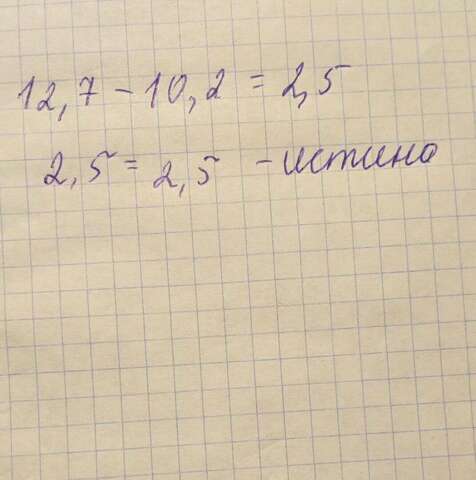 12,7 - 10,2 = 2,5
2,5 = 2,5 - истино